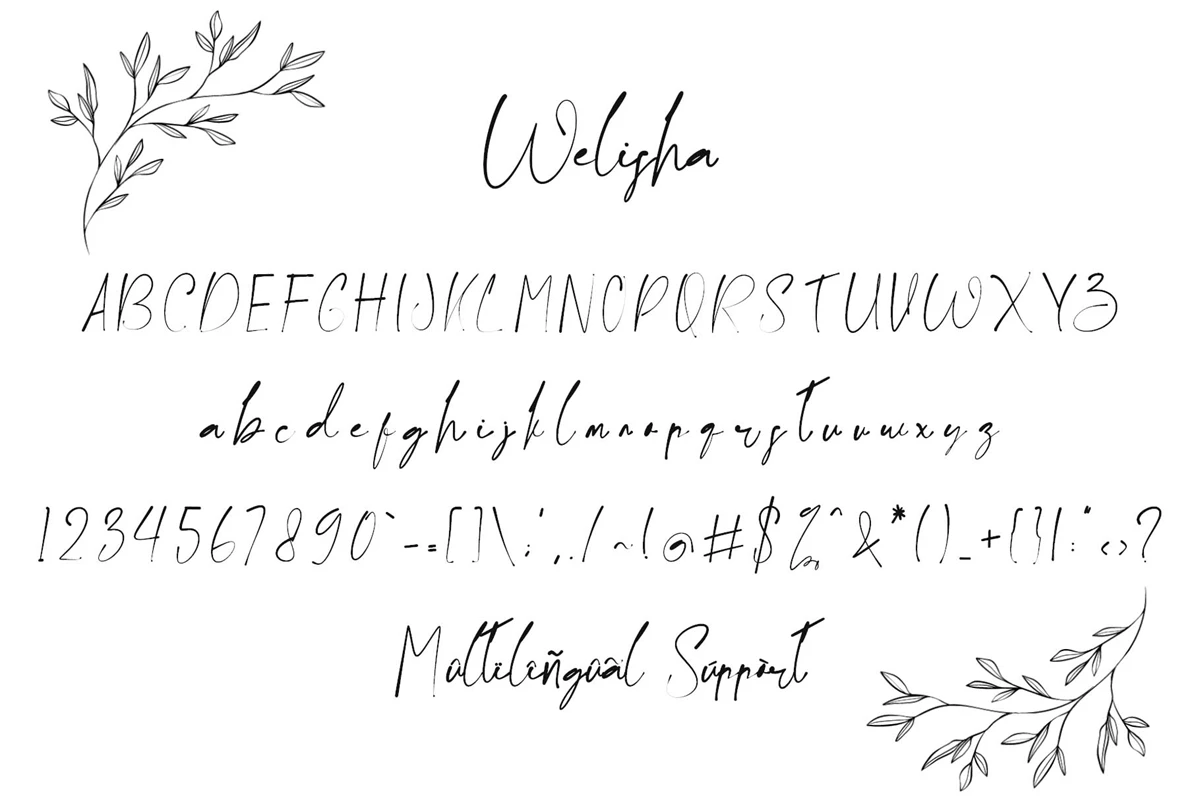 Welisha
ABCDEFGHIJKLMNOPQRSTUVWXYZ
abcdefghijklmnopqrstuvwxyz
1234567890`-=[]\;',./~!@#$%^&*()_+{}|:"<>?
Multïlîñguãl Súppòrt